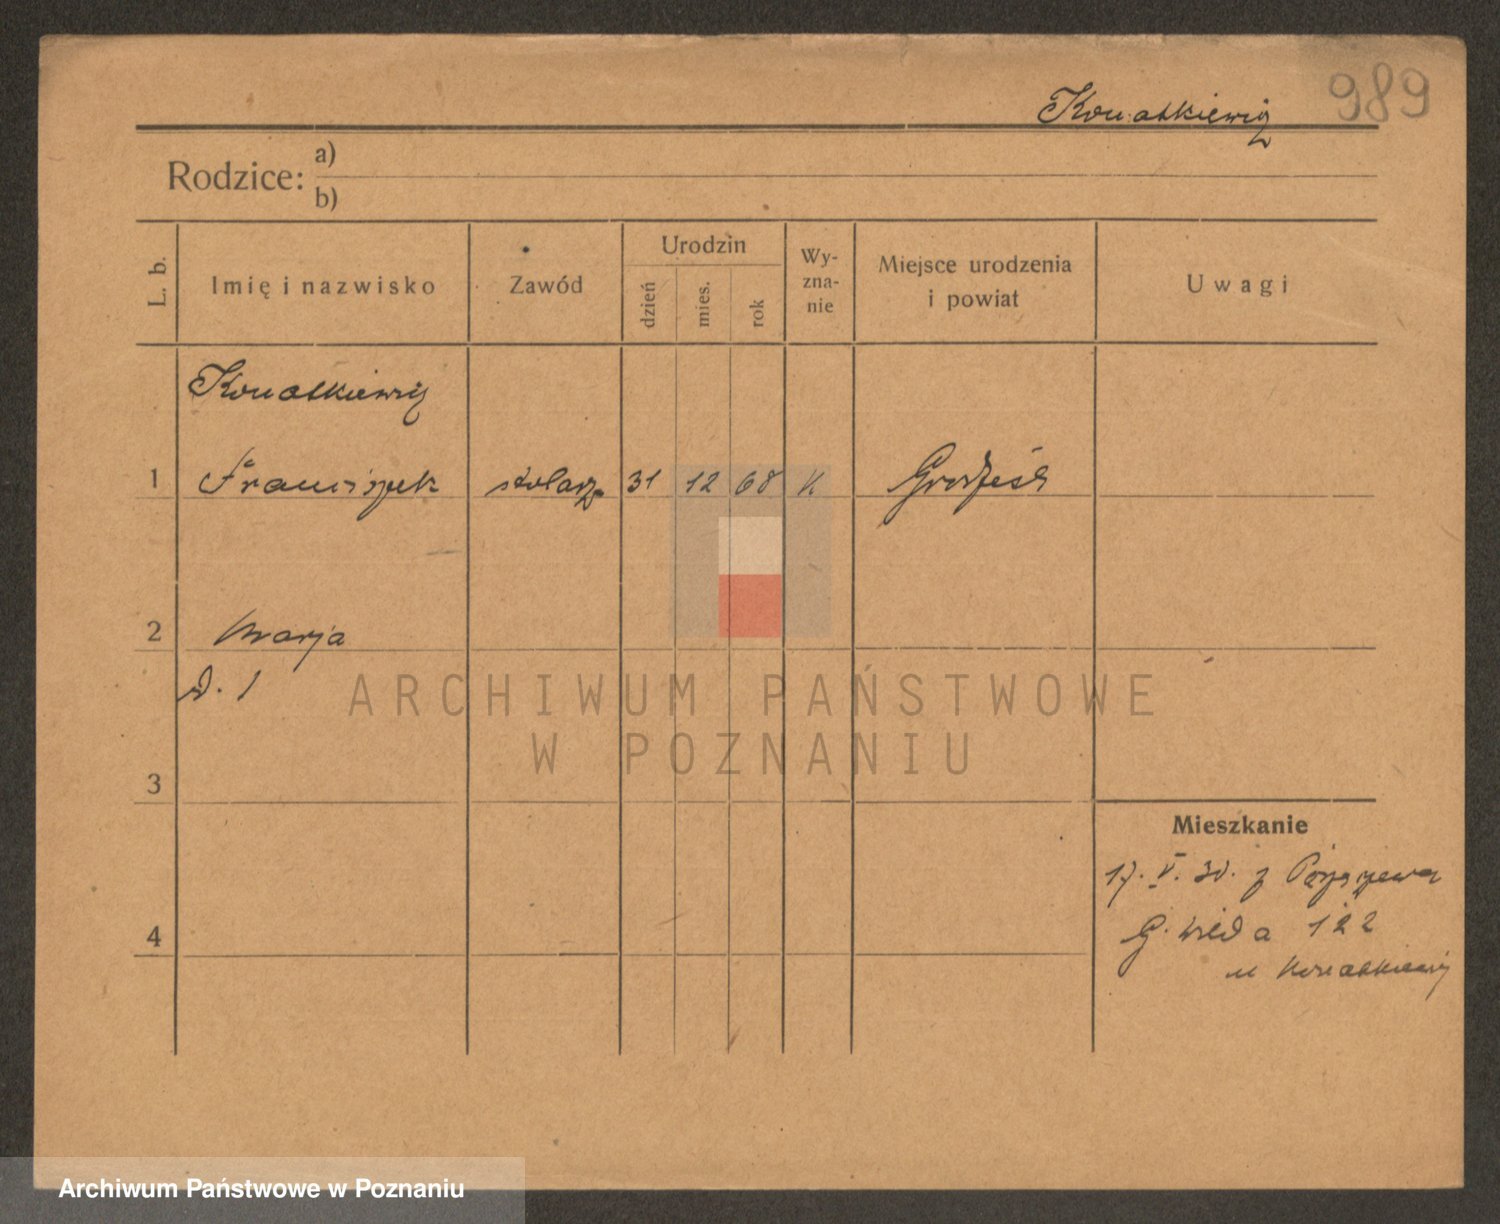 989
Konatkiewicz
Rodzice:
a)
b)
L. b.
Imię i nazwisko
Zawód
Urodzin
dzień
mies.
rok
Wy-
zna-
nie
Miejsce urodzenia
i powiat
Uwagi
Konatkiewicz
1 Franciszek stolarz 31 12 68 K
2 Marja
d. 1
3
4
Mieszkanie
17. V. 30. z
G. Wilda 122
u Konatkiewicz
ARCHIWUM PAŃSTWOWE
W POZNANIU
Archiwum Państwowe w Poznaniu